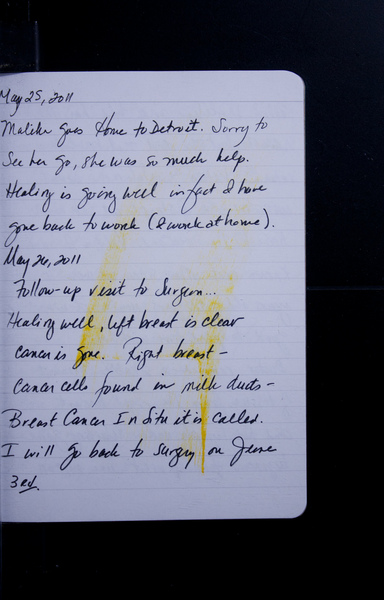 May 25, 2011
Malika goes Home to Detroit. Sorry to
See her go, she was so much help.
Healing is going well in fact I have
gone back to work (I work at home).
May 26, 2011
Follow-up visit to Surgeon...
Healing well, left breast is clear
cancer is gone. Right breast -
Cancer cells found in milk ducts -
Breast Cancer In Situ it is called.
I will go back to surgery on June
3rd.